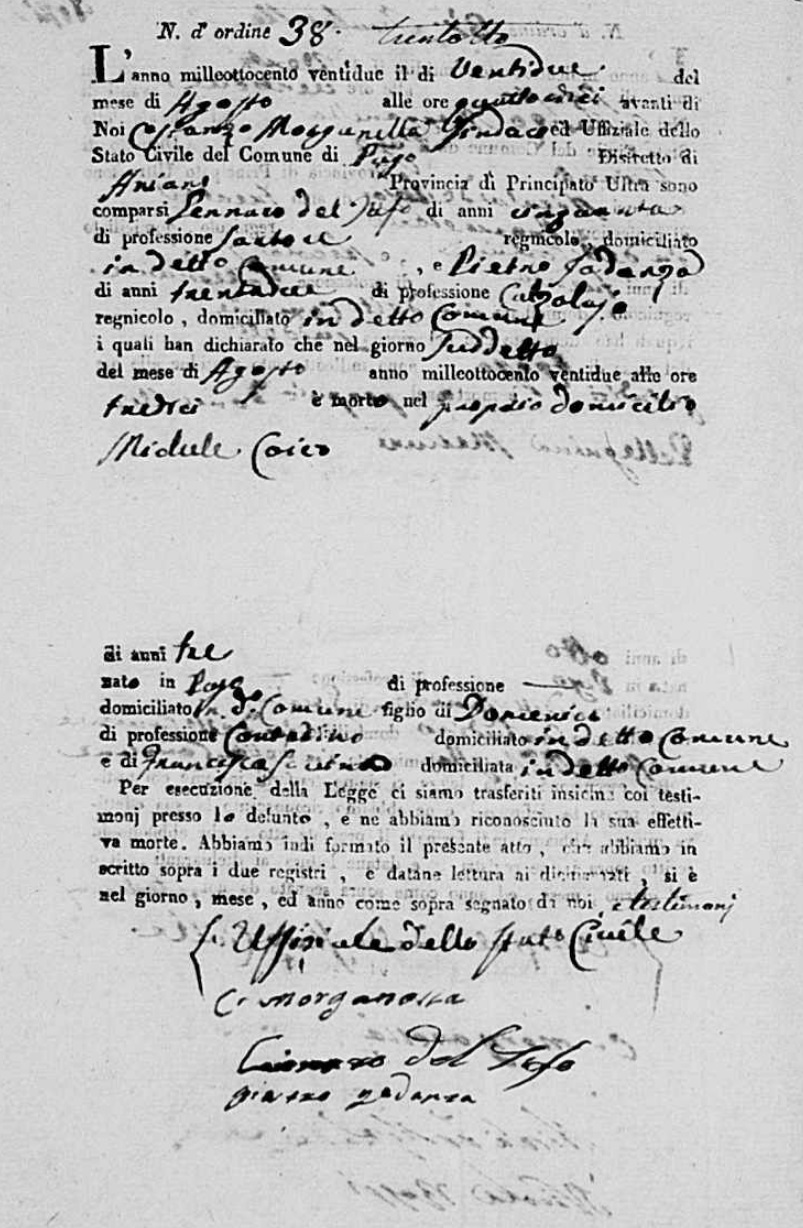 N. d' ordine 38. trentotto
L'anno milleottocento ventidue il di Ventidue del
mese di Agosto alle ore quattordici avanti di
Noi Costanzo Morganella Sindaco ed Uffiziale dello
Stato Civile del Comune di Pago Distretto di
Ariano Provincia di Principato Ultra sono
comparsi Gennaro del Tufo di anni cinquanta
di professione Sartore regnicolo, domiciliato
in detto Comune, e Pietro Jadanza
di anni trentadue di professione Calzolajo
regnicolo, domiciliato in detto Comune
i quali han dichiarato che nel giorno suddetto
del mese di Agosto anno milleottocento ventidue alle ore
tredici è morto nel proprio domicilio
Michele Caico
di anni tre
nato in Pago di professione —
domiciliato in d.o Comune figlio di Domenico
di professione Contadino domiciliato in detto Comune
e di Francesca domiciliata in detto Comune
Per esecuzione della Legge ci siamo trasferiti insieme coi testi-
monj presso lo defunto, e ne abbiamo riconosciuto la sua effetti-
va morte. Abbiamo indi formato il presente atto, che abbiamo in
scritto sopra i due registri, e datane lettura ai dichiaranti, si è
nel giorno, mese, ed anno come sopra segnato da noi, e testimonj
L'Uffiziale dello Stato Civile
C. Morganella
Gennaro del Tufo
pietro jadanza